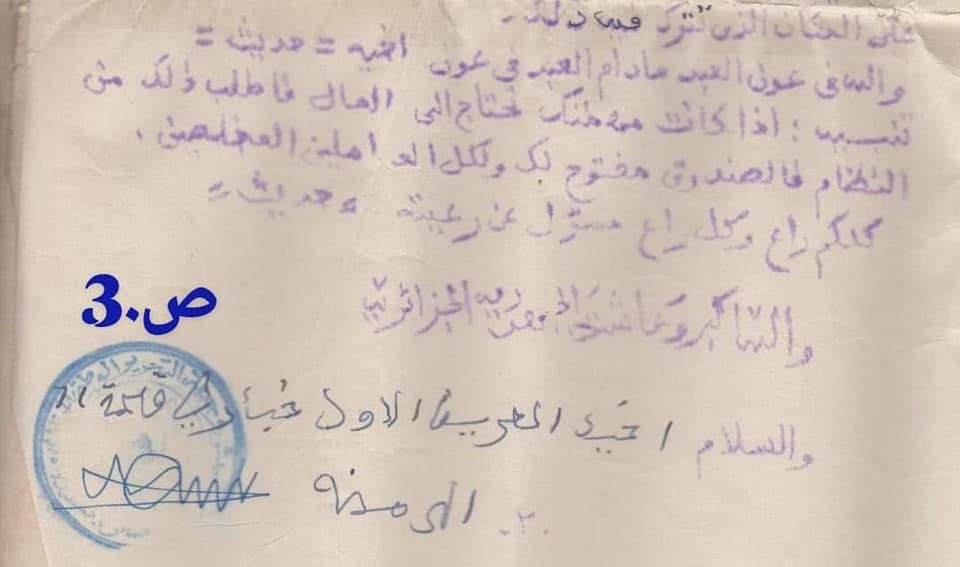 على المكان الذي تترك فيه ذلك.
والله في عون العبد مادام العبد في عون اخيه = حديث =
تنبيه : اذا كانت مهمتك تحتاج الى المال فاطلب ذلك من
النظام فالصندوق مفتوح لك ولكل العاملين المخلصين .
كلكم راع وكل راع مسؤل عن رعيته = حديث =
والله اكبر وعاشت الجمهورية الجزائرية
ص.3
والسلام اخيك العريف الاول
-٣-